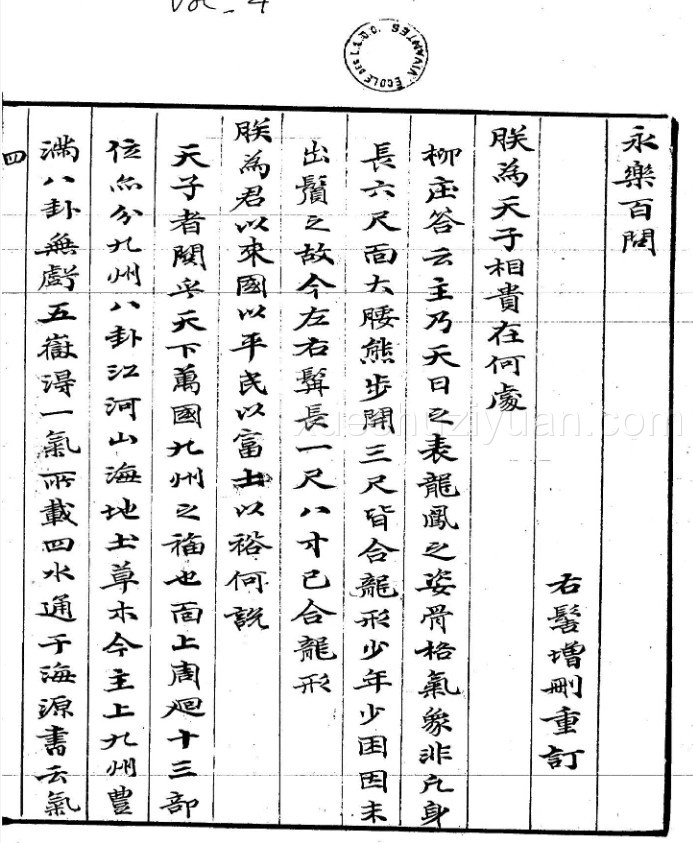 Vol - 4
ECOLE DES L.S.O.O. VIVANTES
永樂百問
右髻增刪重訂
朕為天子相貴在何處
柳庄答云主乃天日之表龍鳳之姿骨格氣象非凡身
長六尺面大腰熊步開三尺皆合龍形少年少困因未
出鬚之故今左右髯長一尺八寸已合龍形
朕為君以來國以平民以富士以裕何說
天子者關乎天下萬國九州之福也面上周廻十三部
位亦分九州八卦江河山海地土草木今主上九州豊
滿八卦無虧五嶽淂一氣所載四水通于海源書云氣
四
xueshuziyuan.com